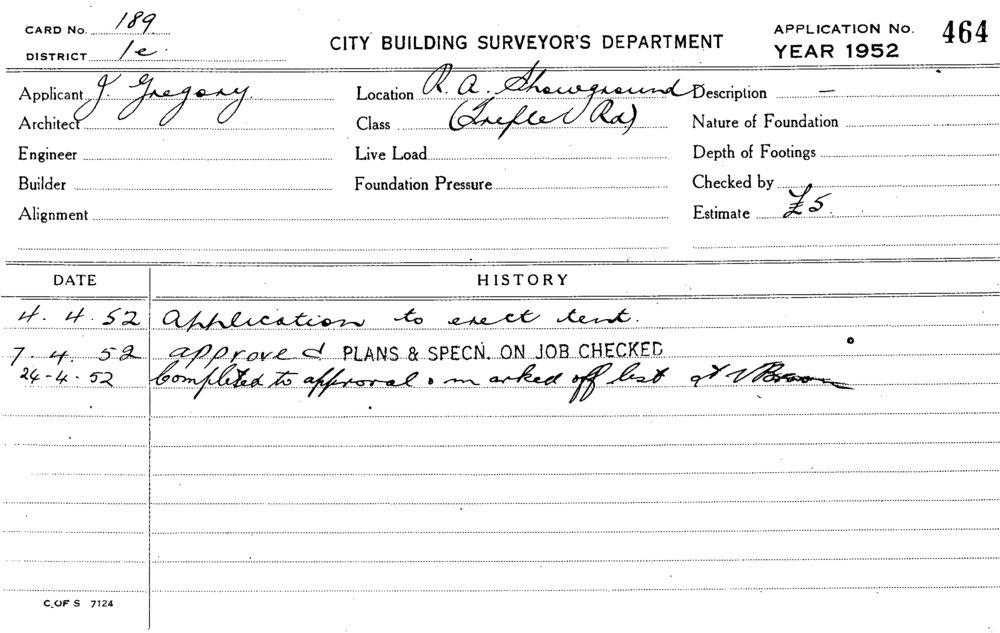 CARD No. 189
DISTRICT 1e.
CITY BUILDING SURVEYOR'S DEPARTMENT
APPLICATION No. 464
YEAR 1952
Applicant J. Gregory. Location R. A. Showground Description —
Architect Class Nature of Foundation
Engineer Live Load Depth of Footings
Builder Foundation Pressure Checked by
Alignment Estimate £5.
DATE HISTORY
4. 4. 52 Application to erect tent.
7. 4. 52 approved PLANS & SPECN. ON JOB CHECKED
24-4-52 Completed to approval & marked off list
C. OF S 7124